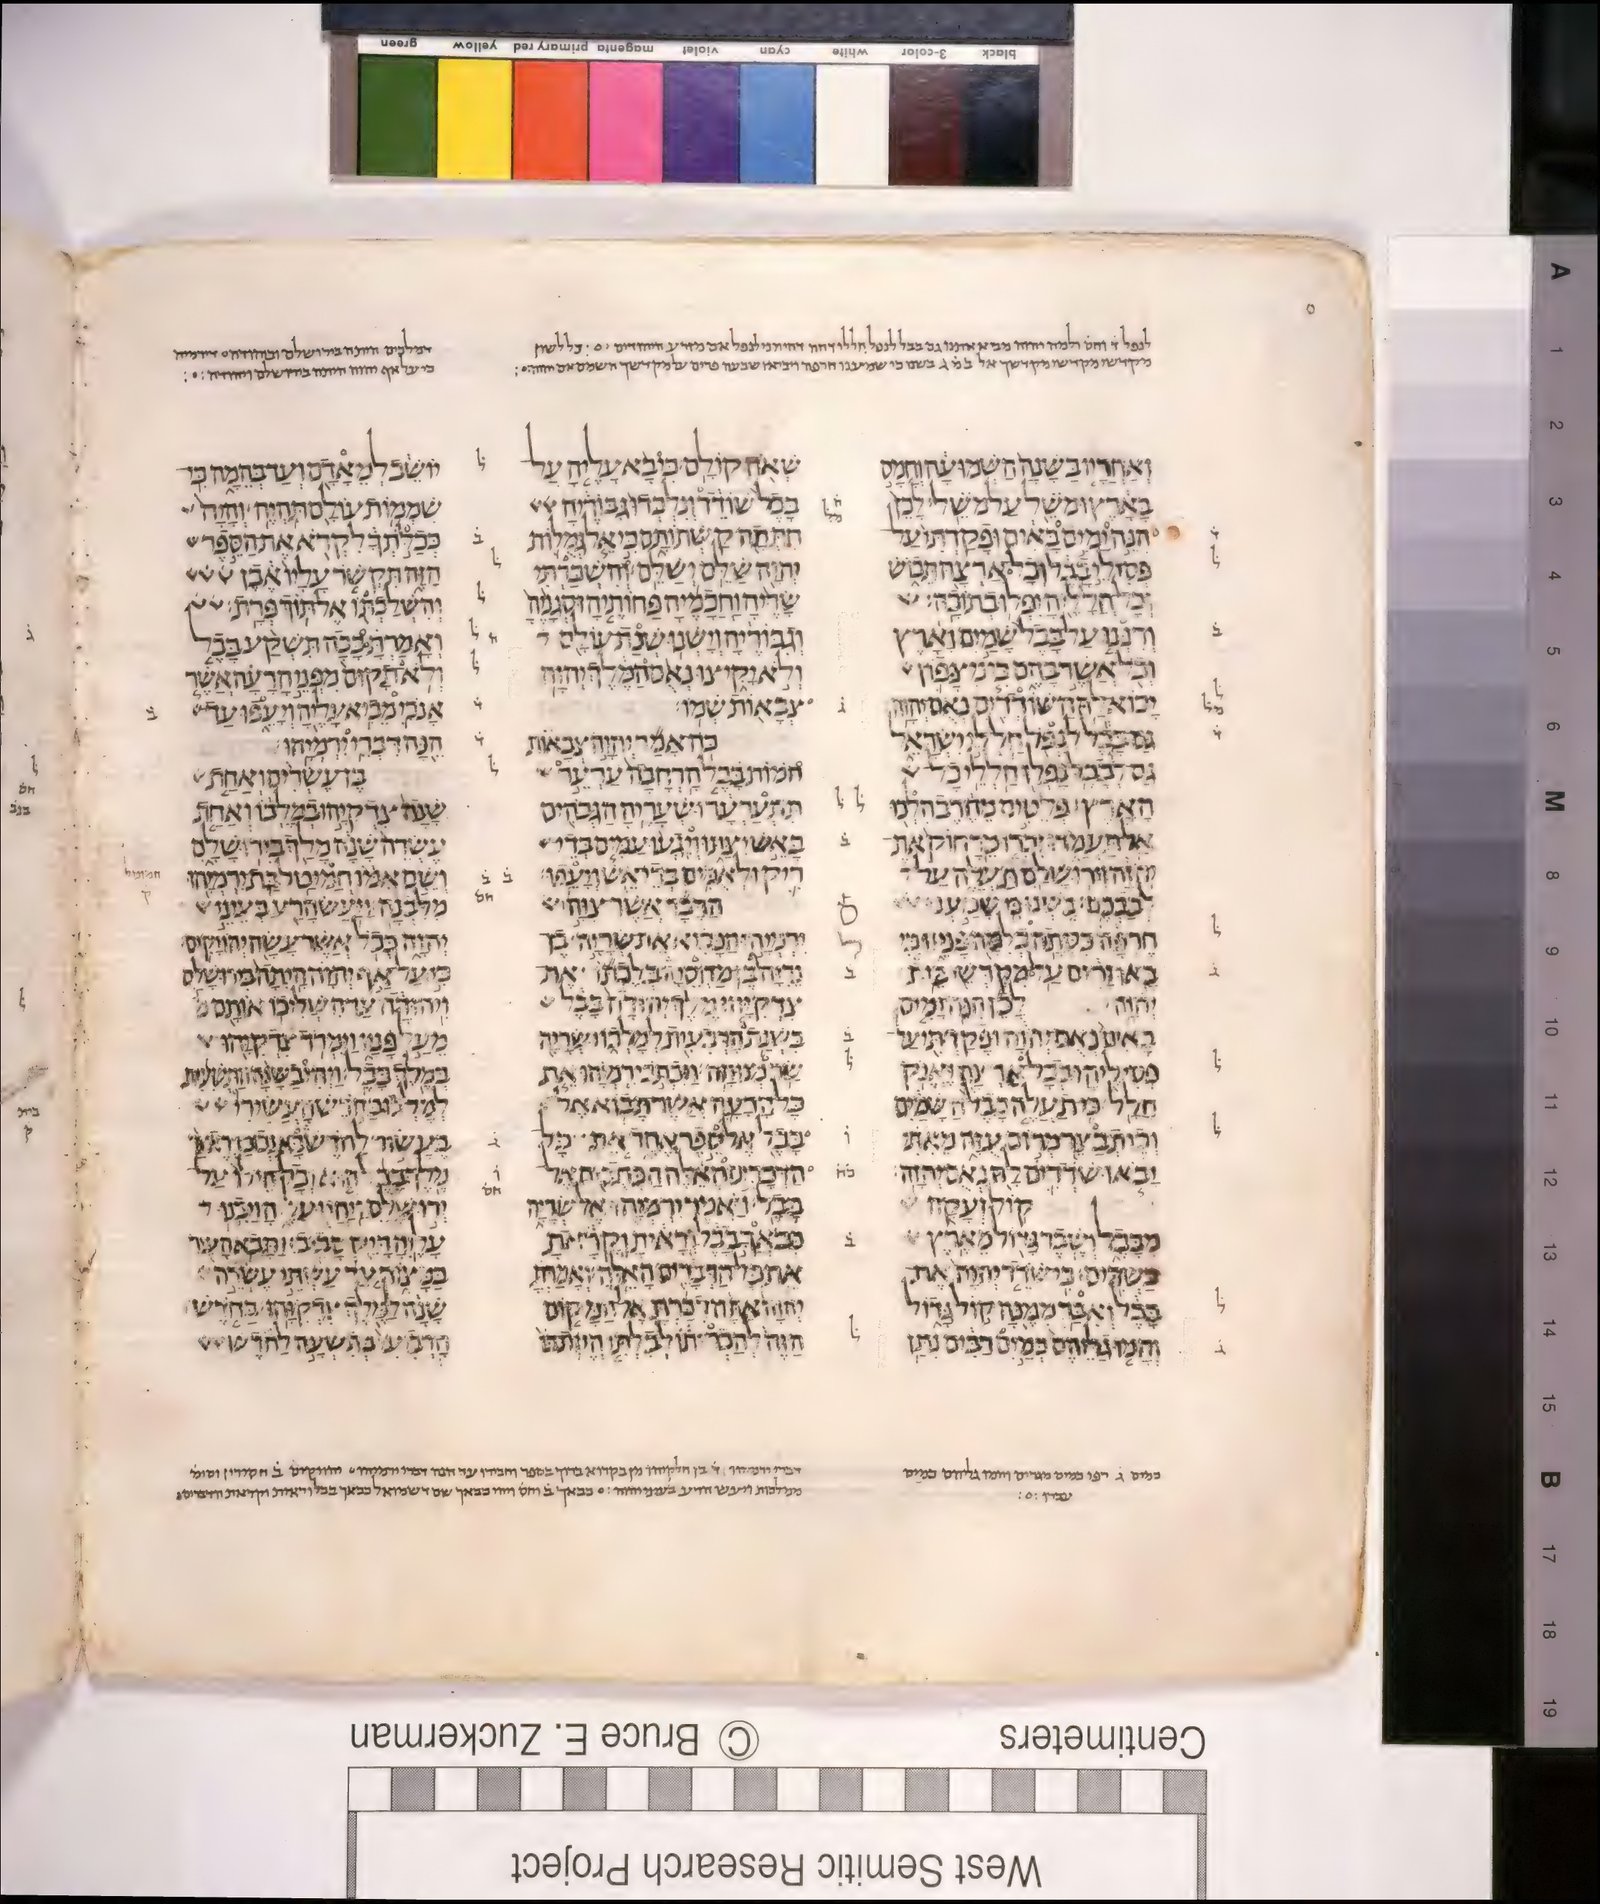 לנפל ד וחס ולמה יהוה מביא אתנו גם בבל לנפל חללי
ואחריו בשנה השמועה וחמס
בארץ ומשל על משל לכן
הנה ימים באים ופקדתי על
פסילי בבל וכל ארצה תבוש
וכל חלליה יפלו בתוכה
ורננו על בבל שמים וארץ
וכל אשר בהם כי מצפון
יבוא לה השודדים נאם יהוה
גם בבל לנפל חללי ישראל
גם לבבל נפלו חללי כל
הארץ פלטים מחרב הלכו
אל תעמדו זכרו מרחוק את
יהוה וירושלם תעלה על
לבבכם בשנו כי שמענו
חרפה כסתה כלמה פנינו כי
באו זרים על מקדשי בית
יהוה לכן הנה ימים
באים נאם יהוה ופקדתי על
פסיליה ובכל ארצה יאנק
חלל כי תעלה בבל השמים
וכי תבצר מרום עזה מאתי
יבאו שדדים לה נאם יהוה
קול זעקה
מבבל ושבר גדול מארץ
כשדים כי שדד יהוה את
בבל ואבד ממנה קול גדול
והמו גליהם כמים רבים נתן
שאון קולם כי בא עליה על
בבל שודד ונלכדו גבוריה
חתתה קשתותם כי אל גמלות
יהוה שלם ישלם והשכרתי
שריה וחכמיה פחותיה וסגניה
וגבוריה וישנו שנת עולם
ולא יקיצו נאם המלך יהוה
צבאות שמו
כה אמר יהוה צבאות
חמות בבל הרחבה ערער
תתערער ושעריה הגבהים
באש יצתו ויגעו עמים בדי
ריק ולאמים בדי אש ויעפו
הדבר אשר צוה
ירמיהו הנביא את שריה בן
נריה בן מחסיה בלכתו את
צדקיהו מלך יהודה בבל
בשנת הרבעית למלכו ושריה
שר מנוחה ויכתב ירמיהו את
כל הרעה אשר תבוא אל
בבל אל ספר אחד את כל
הדברים האלה הכתבים אל
בבל ויאמר ירמיהו אל שריה
כבאך בבל וראית וקראת
את כל הדברים האלה ואמרת
יהוה אתה דברת אל המקום
הזה להכריתו לבלתי היות בו
יושב למאדם ועד בהמה כי
שממות עולם תהיה והיה
ככלתך לקרא את הספר
הזה תקשר עליו אבן
והשלכתו אל תוך פרת
ואמרת ככה תשקע בבל
ולא תקום מפני הרעה אשר
אנכי מביא עליה ויעפו עד
הנה דברי ירמיהו
בן עשרים ואחת
שנה צדקיהו במלכו ואחת
עשרה שנה מלך בירושלם
ושם אמו חמיטל בת ירמיהו
מלבנה ויעש הרע בעיני
יהוה ככל אשר עשה יהויקים
כי על אף יהוה היתה בירושלם
ויהודה עד השליכו אותם
מעל פניו וימרד צדקיהו
במלך בבל ויהי בשנה התשעית
למלכו בחדש העשירי
בעשור לחדש בא נבוכדראצר
מלך בבל הוא וכל חילו על
ירושלם ויחנו עליה ויבנו
עליה דיק סביב ותבא העיר
במצור עד עשתי עשרה
שנה למלך צדקיהו בחדש
הרביעי בתשעה לחדש
green yellow primary red magenta violet cyan white 3-color black
A 1 2 3 4 5 6 M 8 9 10 11 12 13 14 15 B 17 18 19
Centimeters
© Bruce E. Zuckerman
West Semitic Research Project